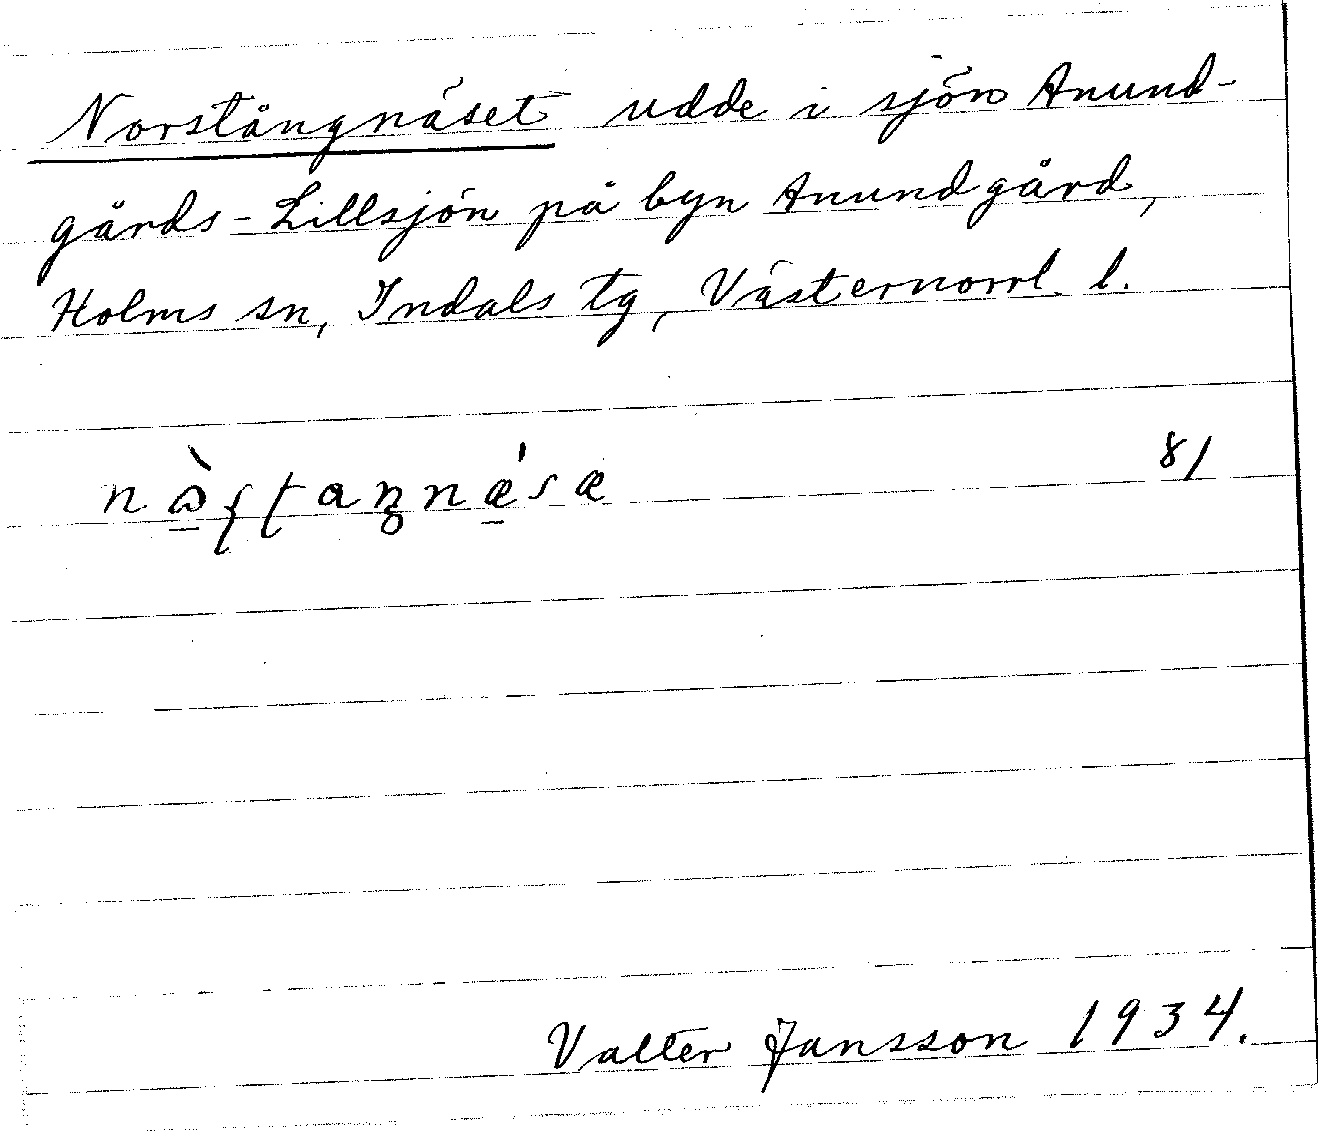 Norstångnäset udde i sjön Anund-
gårds-Lillsjön på byn Anundgård,
Holms sn, Indals tg, Västernorrl. l.
81
Valter Jansson 1934.